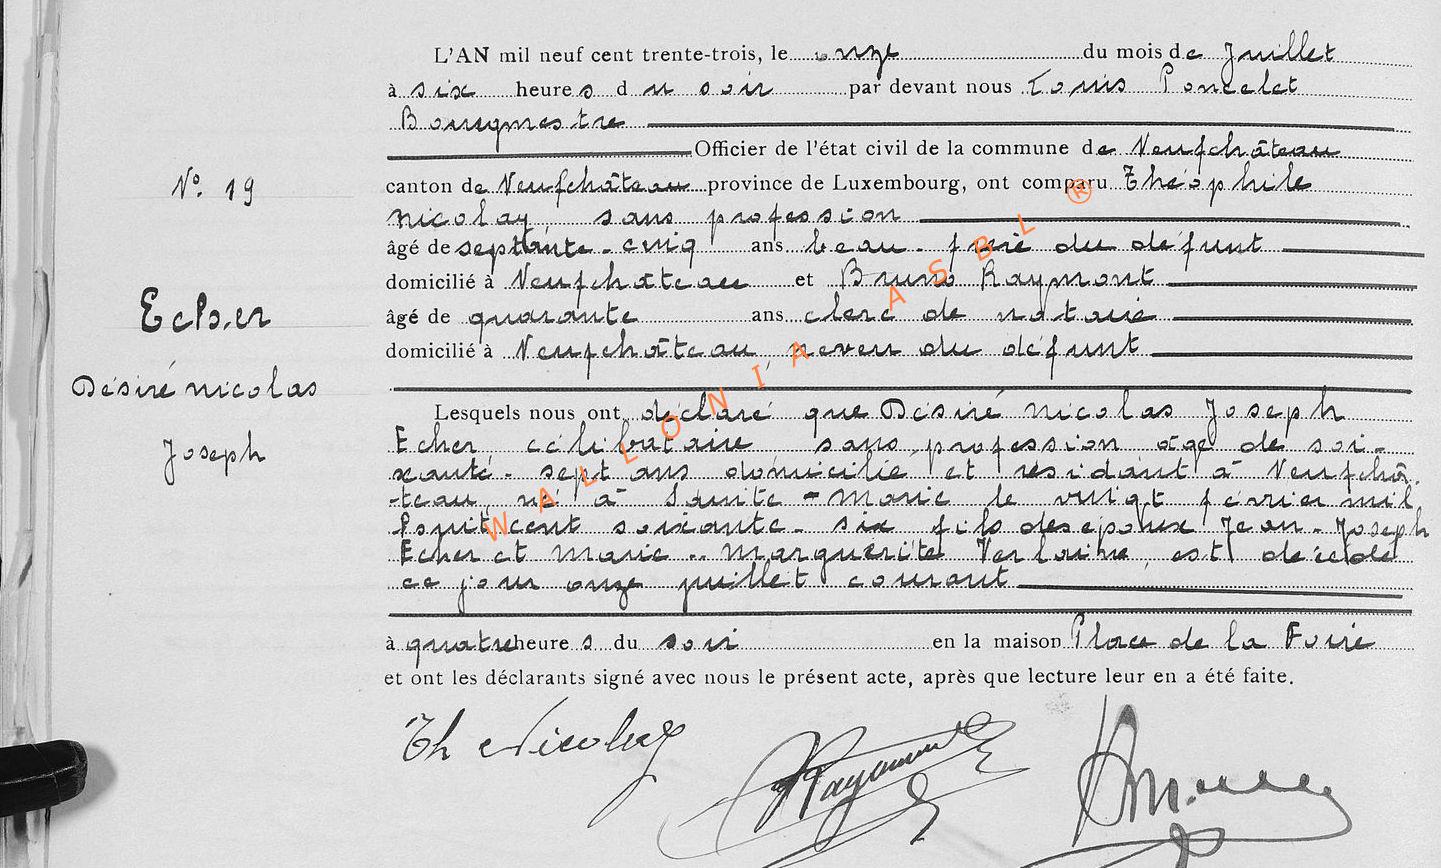 L'AN mil neuf cent trente-trois, le onze du mois de Juillet
à six heures du soir par devant nous Louis Poncelet
Bourgmestre
Officier de l'état civil de la commune de Neufchâteau
N° 19
canton de Neufchâteau province de Luxembourg, ont comparu Théophile
Nicolay, sans profession
âgé de septante-cinq ans beau-frère du défunt
domicilié à Neufchâteau et Bruno Raymont
Echer
âgé de quarante ans clerc de notaire
domicilié à Neufchâteau, neveu du défunt
Désiré Nicolas
Lesquels nous ont déclaré que Désiré Nicolas Joseph
Echer, célibataire sans profession âgé de soi-
Joseph
xante-sept ans domicilié et résidant à Neufchâ-
-teau, né à Sainte-Marie le vingt février mil
huit cent soixante-six fils des époux Jean-Joseph
Echer et Marie-Marguerite Verlaine, est décédé
ce jour onze juillet courant
à quatre heures du soir en la maison Place de la Foire
et ont les déclarants signé avec nous le présent acte, après que lecture leur en a été faite.
Th Nicolay
Raymont
WALLONIA ASBL ®